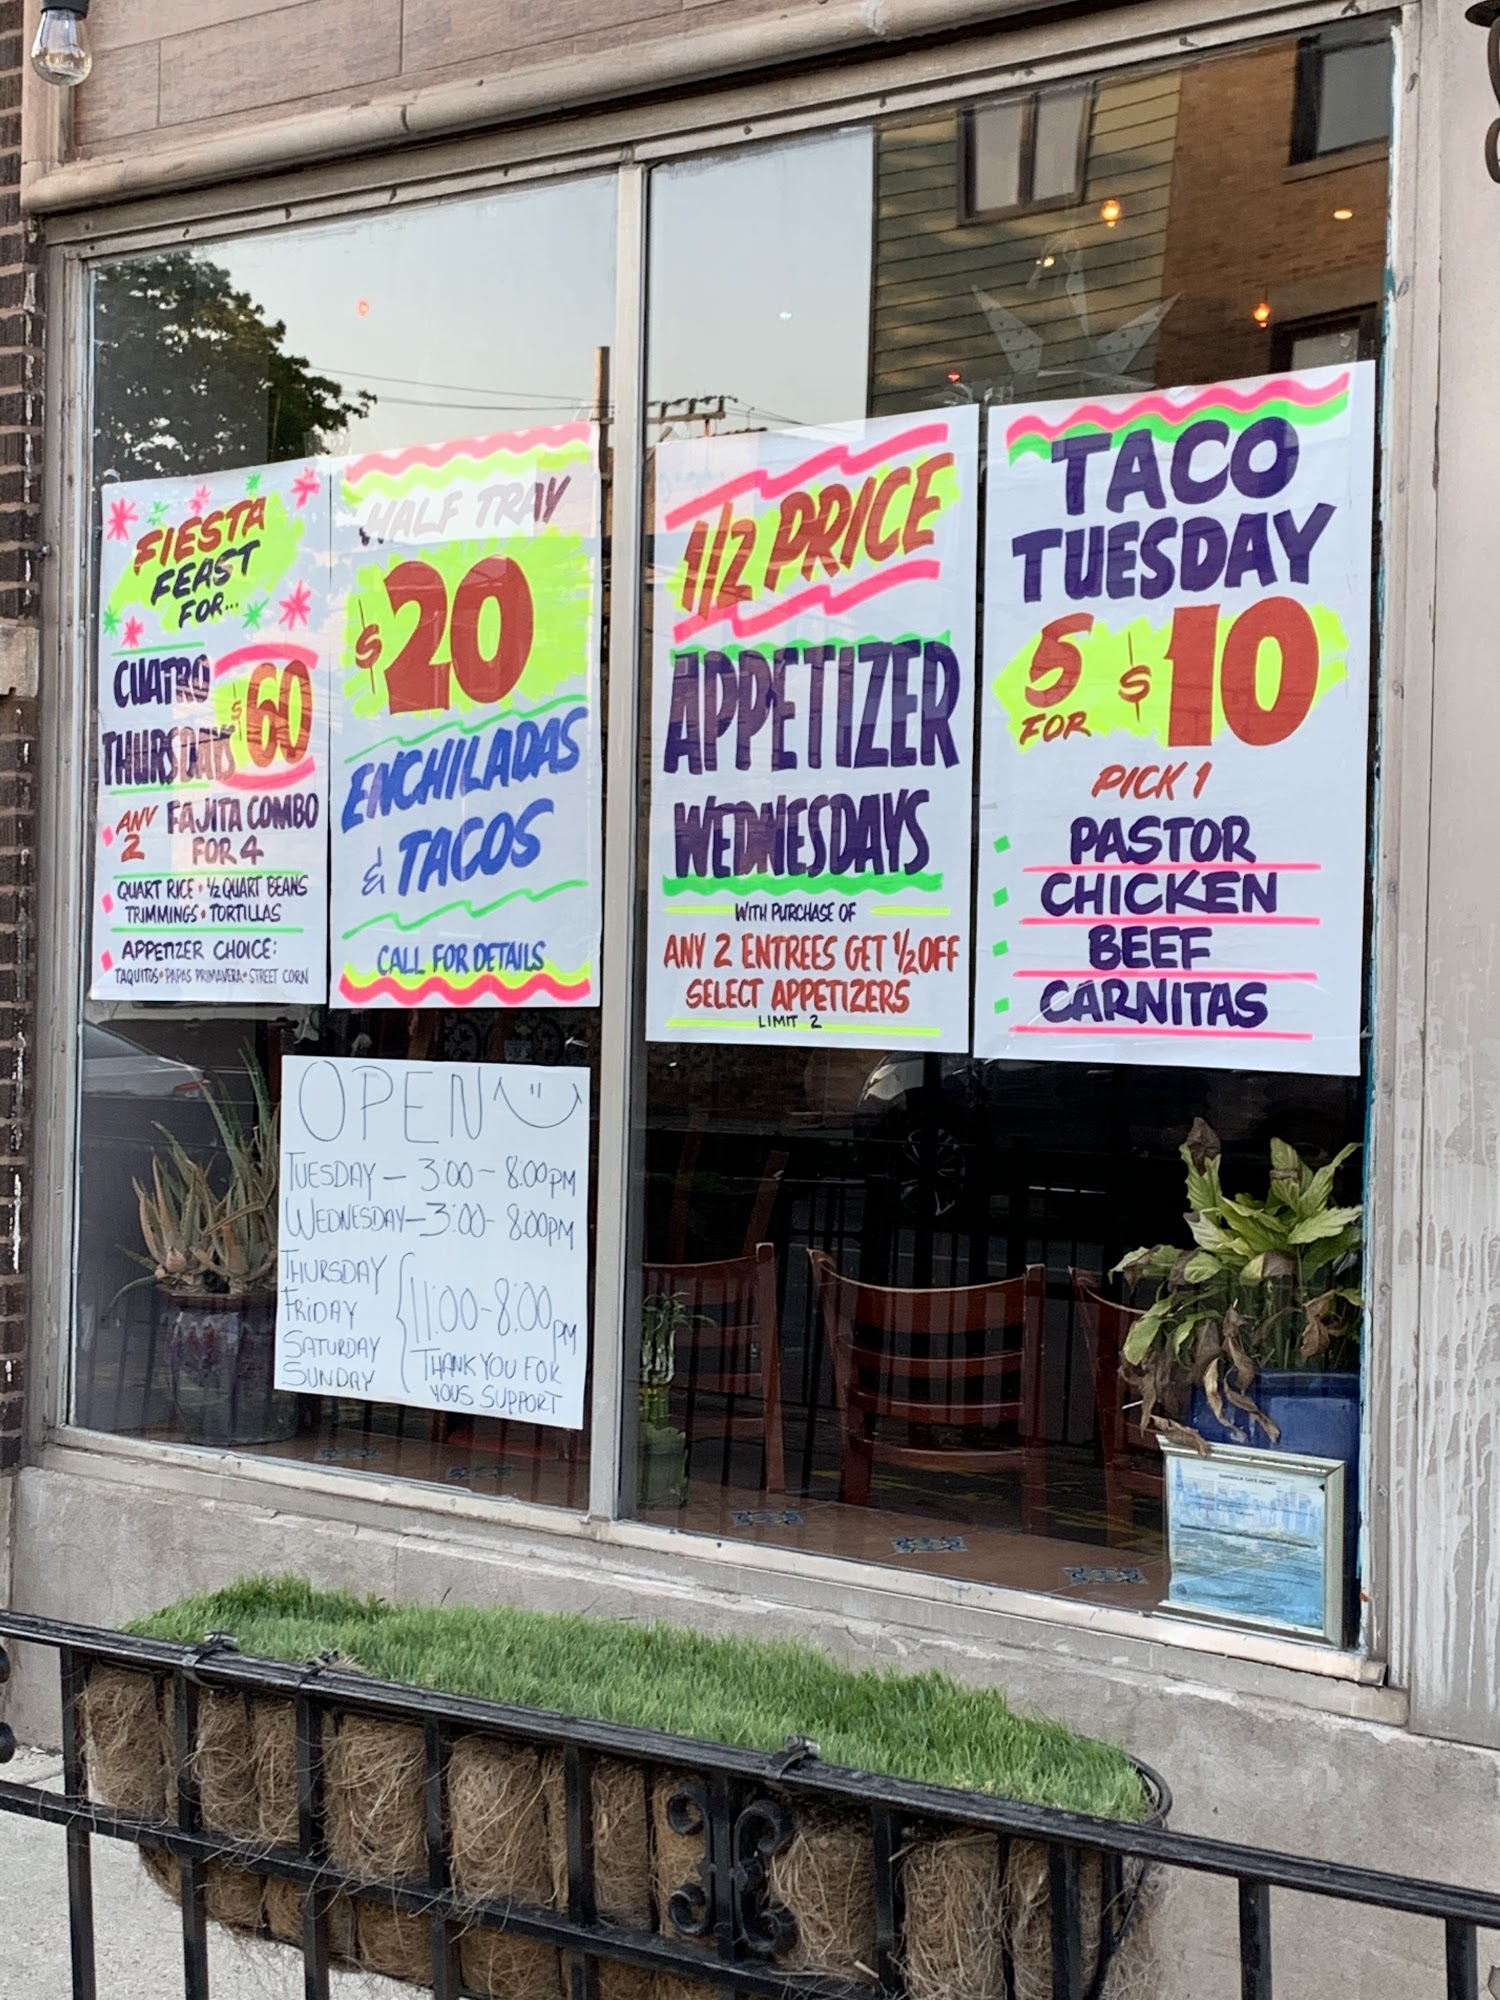 FIESTA
FEAST
FOR...
CUATRO
THURSDAYS $60
ANY 2 FAJITA COMBO
FOR 4
QUART RICE • 1/2 QUART BEANS
TRIMMINGS • TORTILLAS
APPETIZER CHOICE:
TAQUITOS • PAPAS PRIMAVERA • STREET CORN
HALF TRAY
$20
ENCHILADAS
& TACOS
CALL FOR DETAILS
1/2 PRICE
APPETIZER
WEDNESDAYS
WITH PURCHASE OF
ANY 2 ENTREES GET 1/2 OFF
SELECT APPETIZERS
LIMIT 2
TACO
TUESDAY
5 FOR $10
PICK 1
PASTOR
CHICKEN
BEEF
CARNITAS
OPEN
TUESDAY - 3:00 - 8:00PM
WEDNESDAY - 3:00 - 8:00PM
THURSDAY
FRIDAY
SATURDAY
SUNDAY
11:00 - 8:00PM
THANK YOU FOR
YOUS SUPPORT